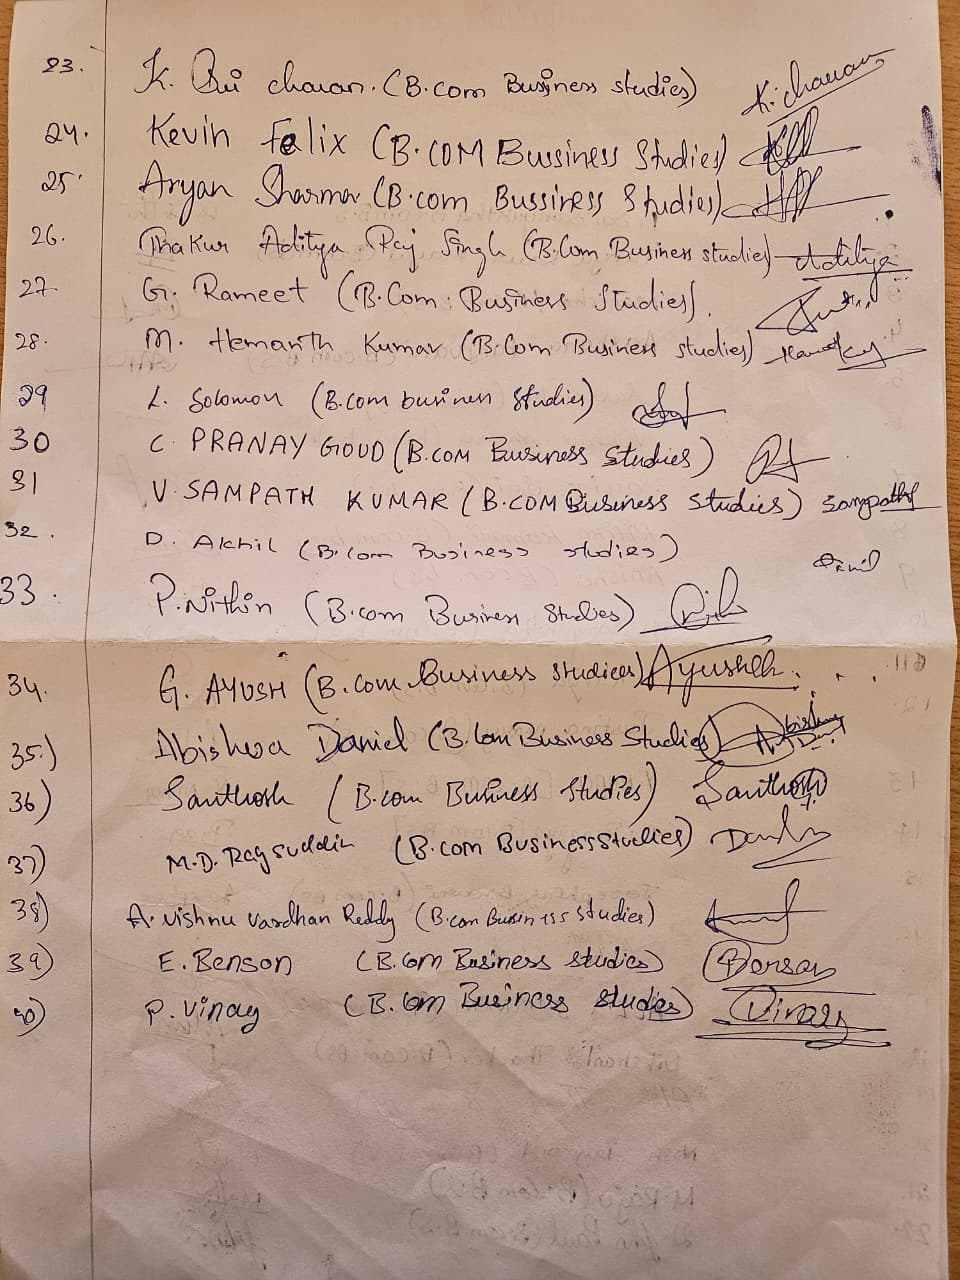 23. K. Sai charan. (B.com Business studies) K. charan
24. Kevin Felix (B.COM Bussiness Studies)
25. Aryan Sharma (B.com Bussiness Studies)
26. Thakur Aditya Raj Singh (B.Com Business studies) Aditya
27. G. Rameet (B.Com. Business Studies).
28. M. Hemanth Kumar (B.Com Business studies)
29 L. Solomon (B.com business Studies)
30 C. PRANAY GOUD (B.COM Business Studies)
31 V. SAMPATH KUMAR (B.COM Business Studies) Sampath
32. D. Akhil (B.com Business studies)
33. P. Nithin (B.com Business Studies)
34. G. AYUSH (B.Com Business studies) Ayush
35.) Abishera Daniel (B.Com Business Studies)
36) Santhosh (B.com Business Studies) Santhosh
37) M.D. (B.com Business Studies)
38) A. vishnu vardhan Reddy (B.com Business Studies)
39) E. Benson (B.Com Business Studies) Benson
40) P. Vinay (B.Com Business Studies) Vinay